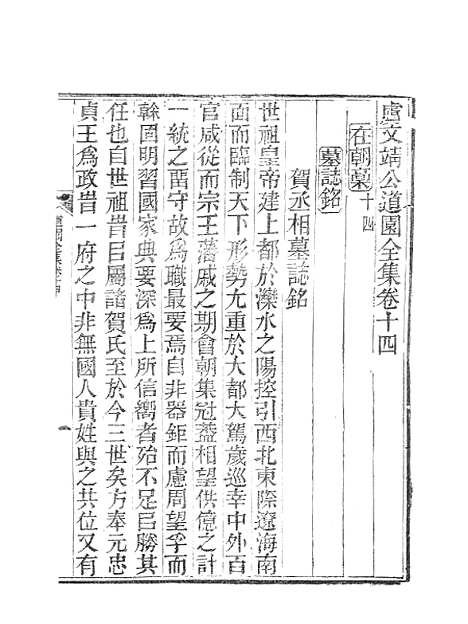 虞文靖公道園全集卷十四
在朝稾十四
墓誌銘
賀丞相墓誌銘
世祖皇帝建上都於灤水之陽控引西北東際遼海南
面而臨制天下形勢尤重於大都大駕歲巡幸中外百
官咸從而宗王藩戚之期會朝集冠蓋相望供億之計
一統之畱守故爲職最要焉自非器鉅而慮周望孚而
幹固明習國家典要深爲上所信嚮者殆不足㠯勝其
任也自世祖昔㠯屬諸賀氏至於今三世矣方奉元忠
貞王爲政昔一府之中非無國人貴姓與之共位又有